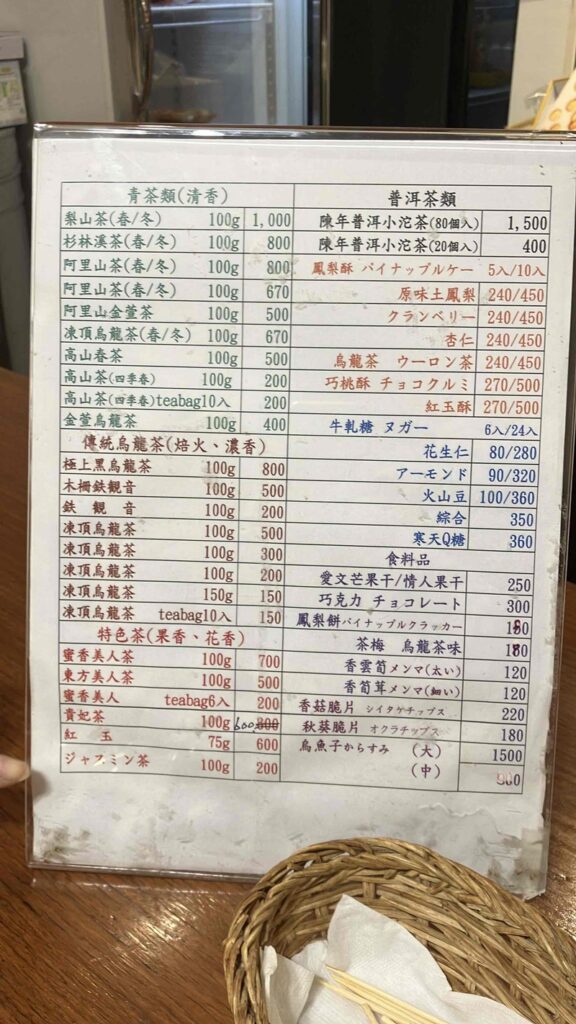 青茶類(清香)
梨山茶(春/冬) 100g 1,000
杉林溪茶(春/冬) 100g 800
阿里山茶(春/冬) 100g 800
阿里山茶(春/冬) 100g 670
阿里山金萱茶 100g 500
凍頂烏龍茶(春/冬) 100g 670
高山春茶 100g 500
高山茶(四季春) 100g 200
高山茶(四季春)teabag10入 200
金萱烏龍茶 100g 400
傳統烏龍茶(焙火、濃香)
極上黑烏龍茶 100g 800
木柵鉄観音 100g 500
鉄 觀 音 100g 200
凍頂烏龍茶 100g 500
凍頂烏龍茶 100g 300
凍頂烏龍茶 100g 200
凍頂烏龍茶 150g 150
凍頂烏龍茶 teabag10入 150
特色茶(果香、花香)
蜜香美人茶 100g 700
東方美人茶 100g 500
蜜香美人 teabag6入 200
貴妃茶 100g 600 800
紅 玉 75g 600
ジャスミン茶 100g 200
普洱茶類
陳年普洱小沱茶(80個入) 1,500
陳年普洱小沱茶(20個入) 400
鳳梨酥 パイナップルケー 5入/10入
原味土鳳梨 240/450
クランベリー 240/450
杏仁 240/450
烏龍茶 ウーロン茶 240/450
巧桃酥 チョコクルミ 270/500
紅玉酥 270/500
牛軋糖 ヌガー 6入/24入
花生仁 80/280
アーモンド 90/320
火山豆 100/360
綜合 350
寒天Q糖 360
食料品
愛文芒果干/情人果干 250
巧克力 チョコレート 300
鳳梨餅パイナップルクラッカー
茶梅 烏龍茶味
香雲筍メンマ(太い) 120
香筍茸メンマ(細い) 120
香菇脆片 シイタケチップス 220
秋葵脆片 オクラチップス 180
烏魚子からすみ (大) 1500
(中)